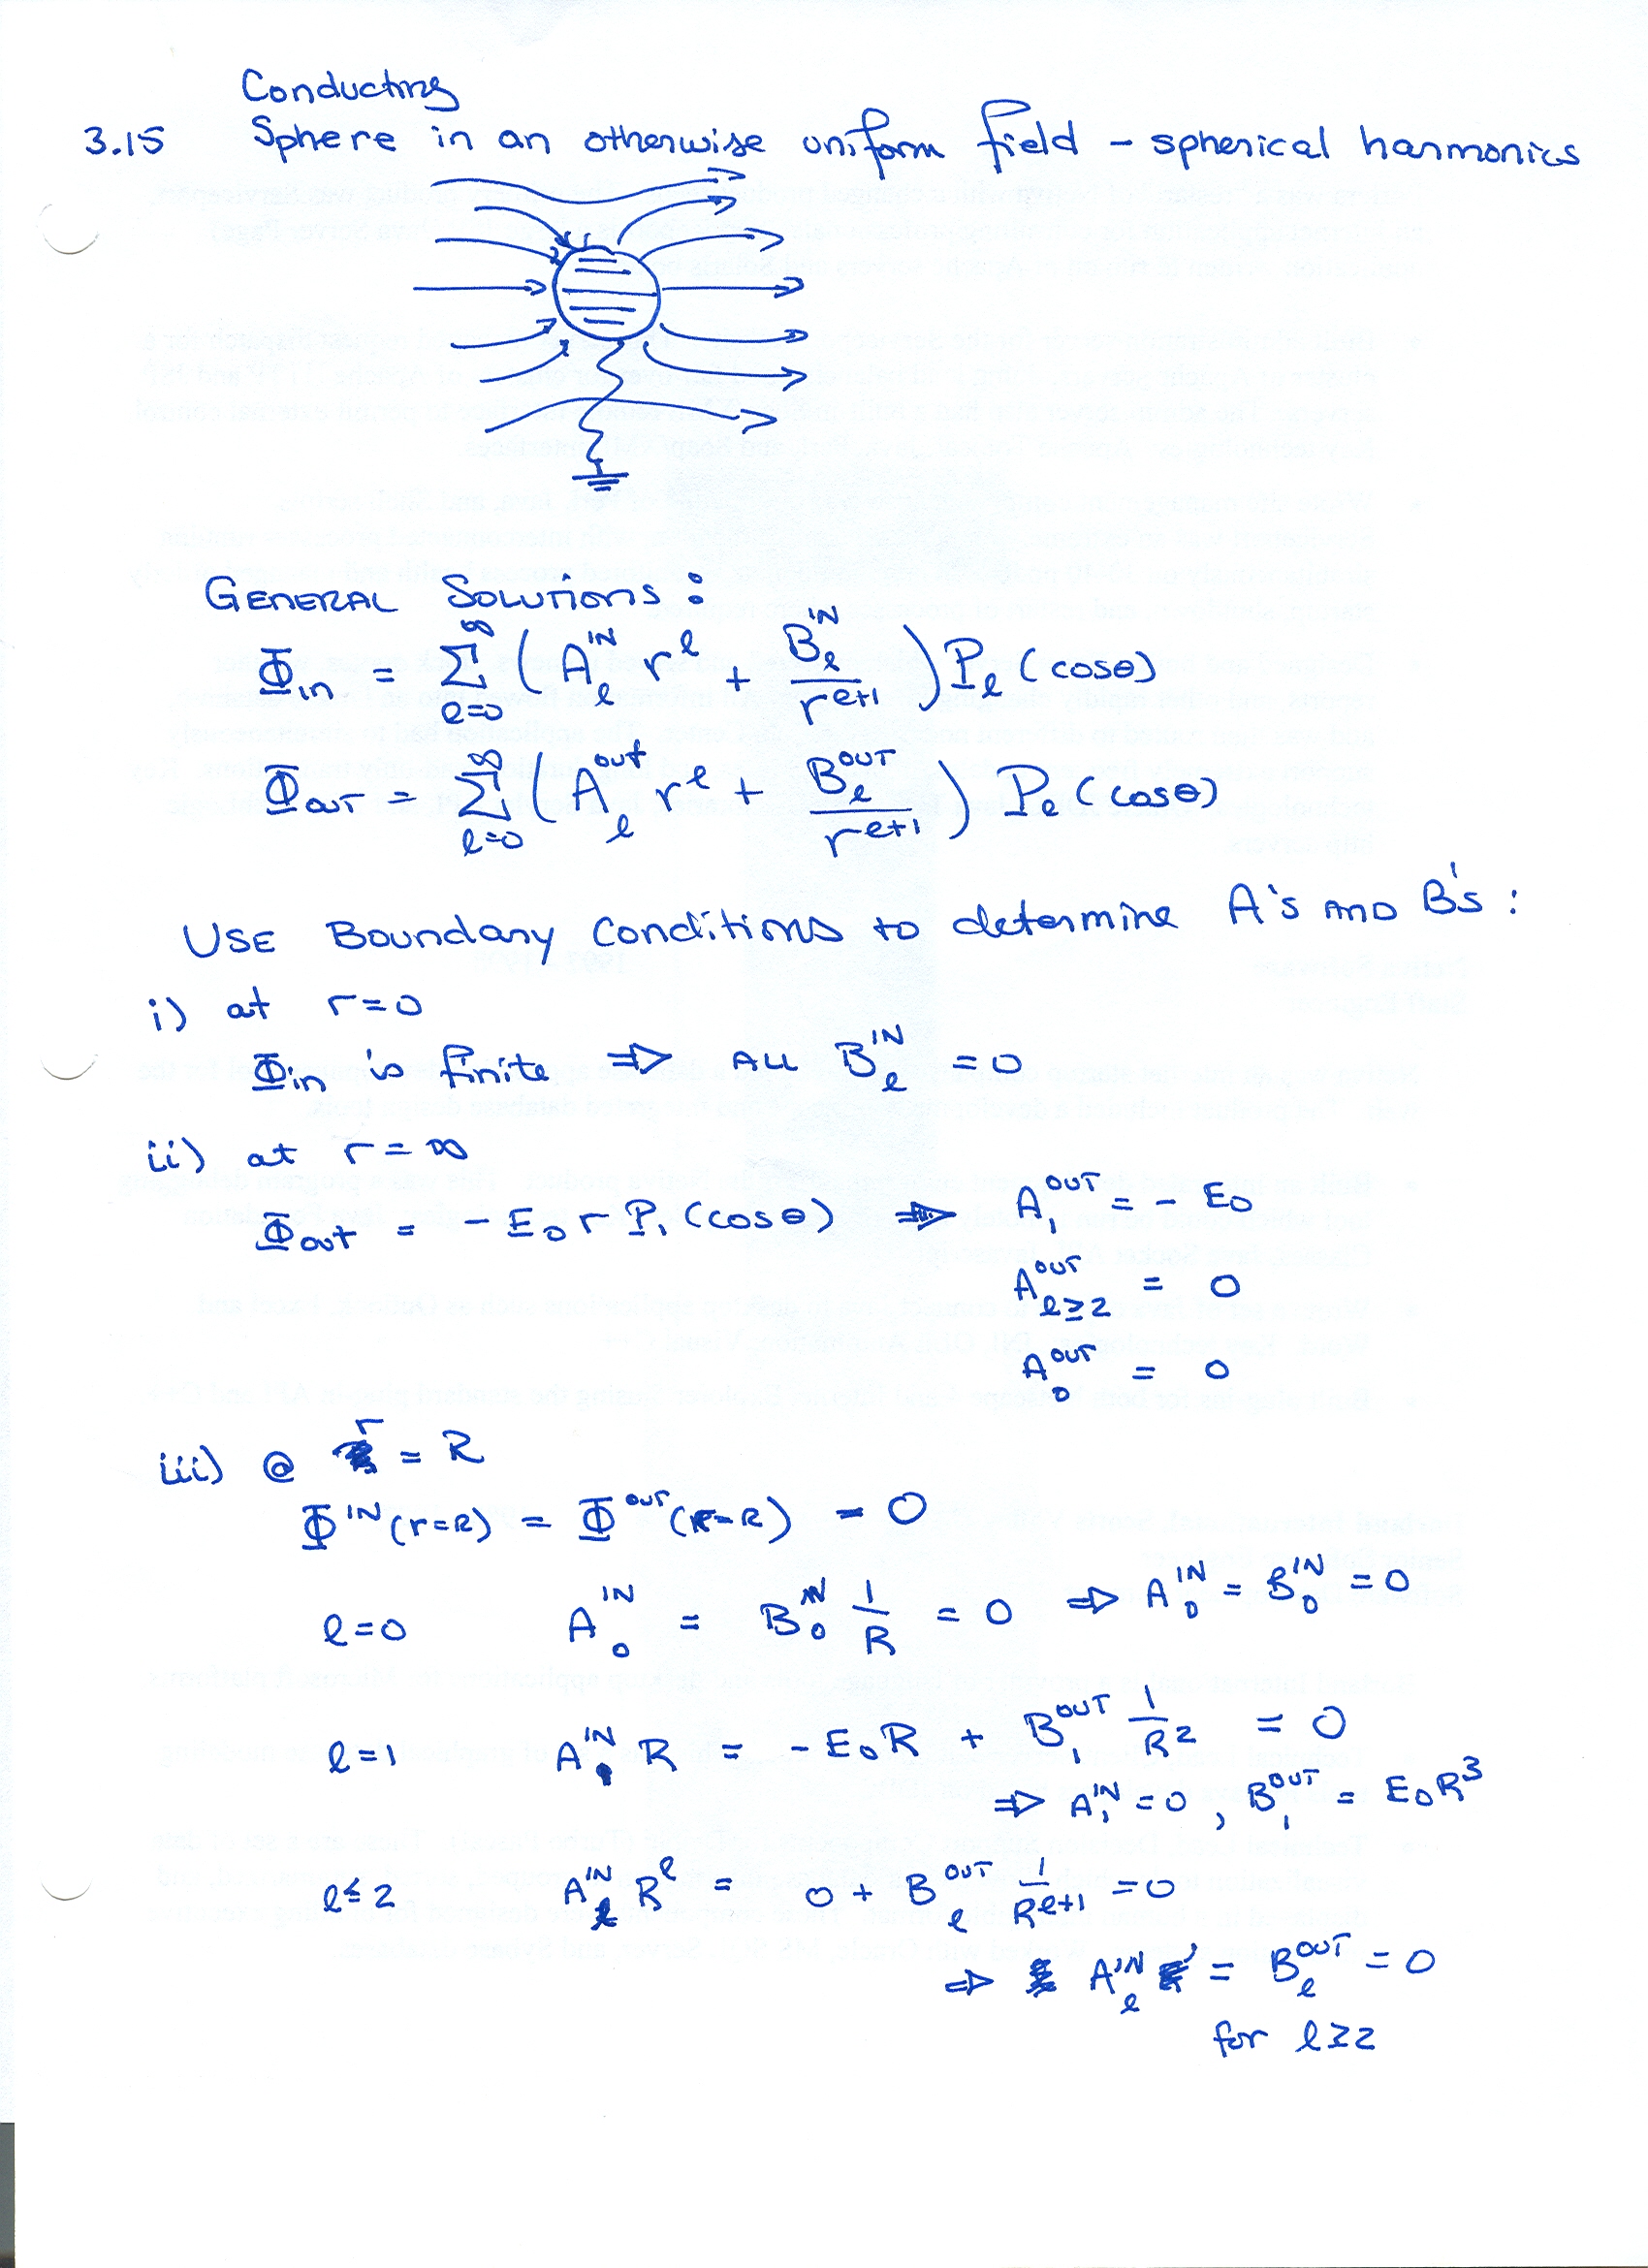 Conducting
3.15 Sphere in an otherwise uniform field - spherical harmonics
GENERAL SOLUTIONS:
Φ_in = Σ_{ℓ=0}^{∞} ( A_ℓ^{IN} r^ℓ + B_ℓ^{IN} / r^{ℓ+1} ) P_ℓ (cosθ)
Φ_out = Σ_{ℓ=0}^{∞} ( A_ℓ^{out} r^ℓ + B_ℓ^{OUT} / r^{ℓ+1} ) P_ℓ (cosθ)
USE Boundary Conditions to determine A's AND B's :
i) at r=0
Φ_in is finite ⇒ ALL B_ℓ^{IN} = 0
ii) at r = ∞
Φ_out = - E_0 r P_1 (cosθ) ⇒ A_1^{OUT} = - E_0
A_{ℓ≥2}^{OUT} = 0
A_0^{OUT} = 0
iii) @ r = R
Φ^{IN} (r=R) = Φ^{out} (r=R) = 0
ℓ=0 A_0^{IN} = B_0^{IN} 1/R = 0 ⇒ A_0^{IN} = B_0^{IN} = 0
ℓ=1 A_1^{IN} R = - E_0 R + B_1^{OUT} 1/R^2 = 0
⇒ A_1^{IN} = 0 , B_1^{OUT} = E_0 R^3
ℓ≤2 A_ℓ^{IN} R^ℓ = 0 + B_ℓ^{OUT} 1/R^{ℓ+1} = 0
⇒ A_ℓ^{IN} = B_ℓ^{OUT} = 0
for ℓ≥2